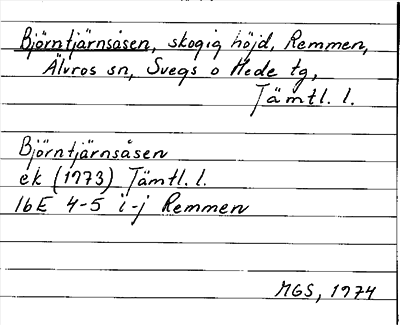 Björntjärnsåsen, skogig höjd, Remmen,
Älvros sn, Svegs o Hede tg,
Jämtl. l.
Björntjärnsåsen
ek (1973) Jämtl. l.
16E 4-5 i-j Remmen
MGS, 1974